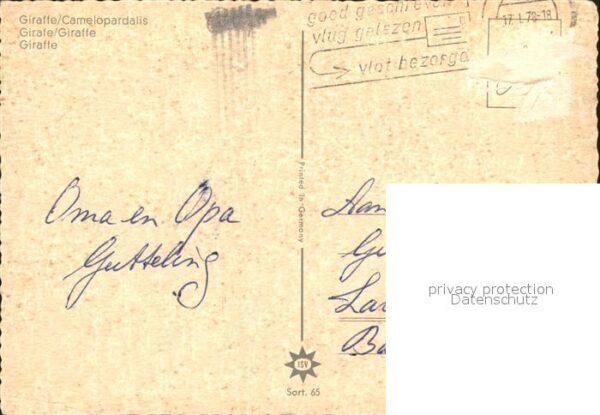 Giraffe/Camelopardalis
Girafe/Giraffe
Giraffe
goed geschreven
vlug gelezen
vlot bezorgd
17. I. 78-18
Printed in Germany
Oma en Opa
Gutteling
Aan
privacy protection
Datenschutz
ISV
Sort. 65